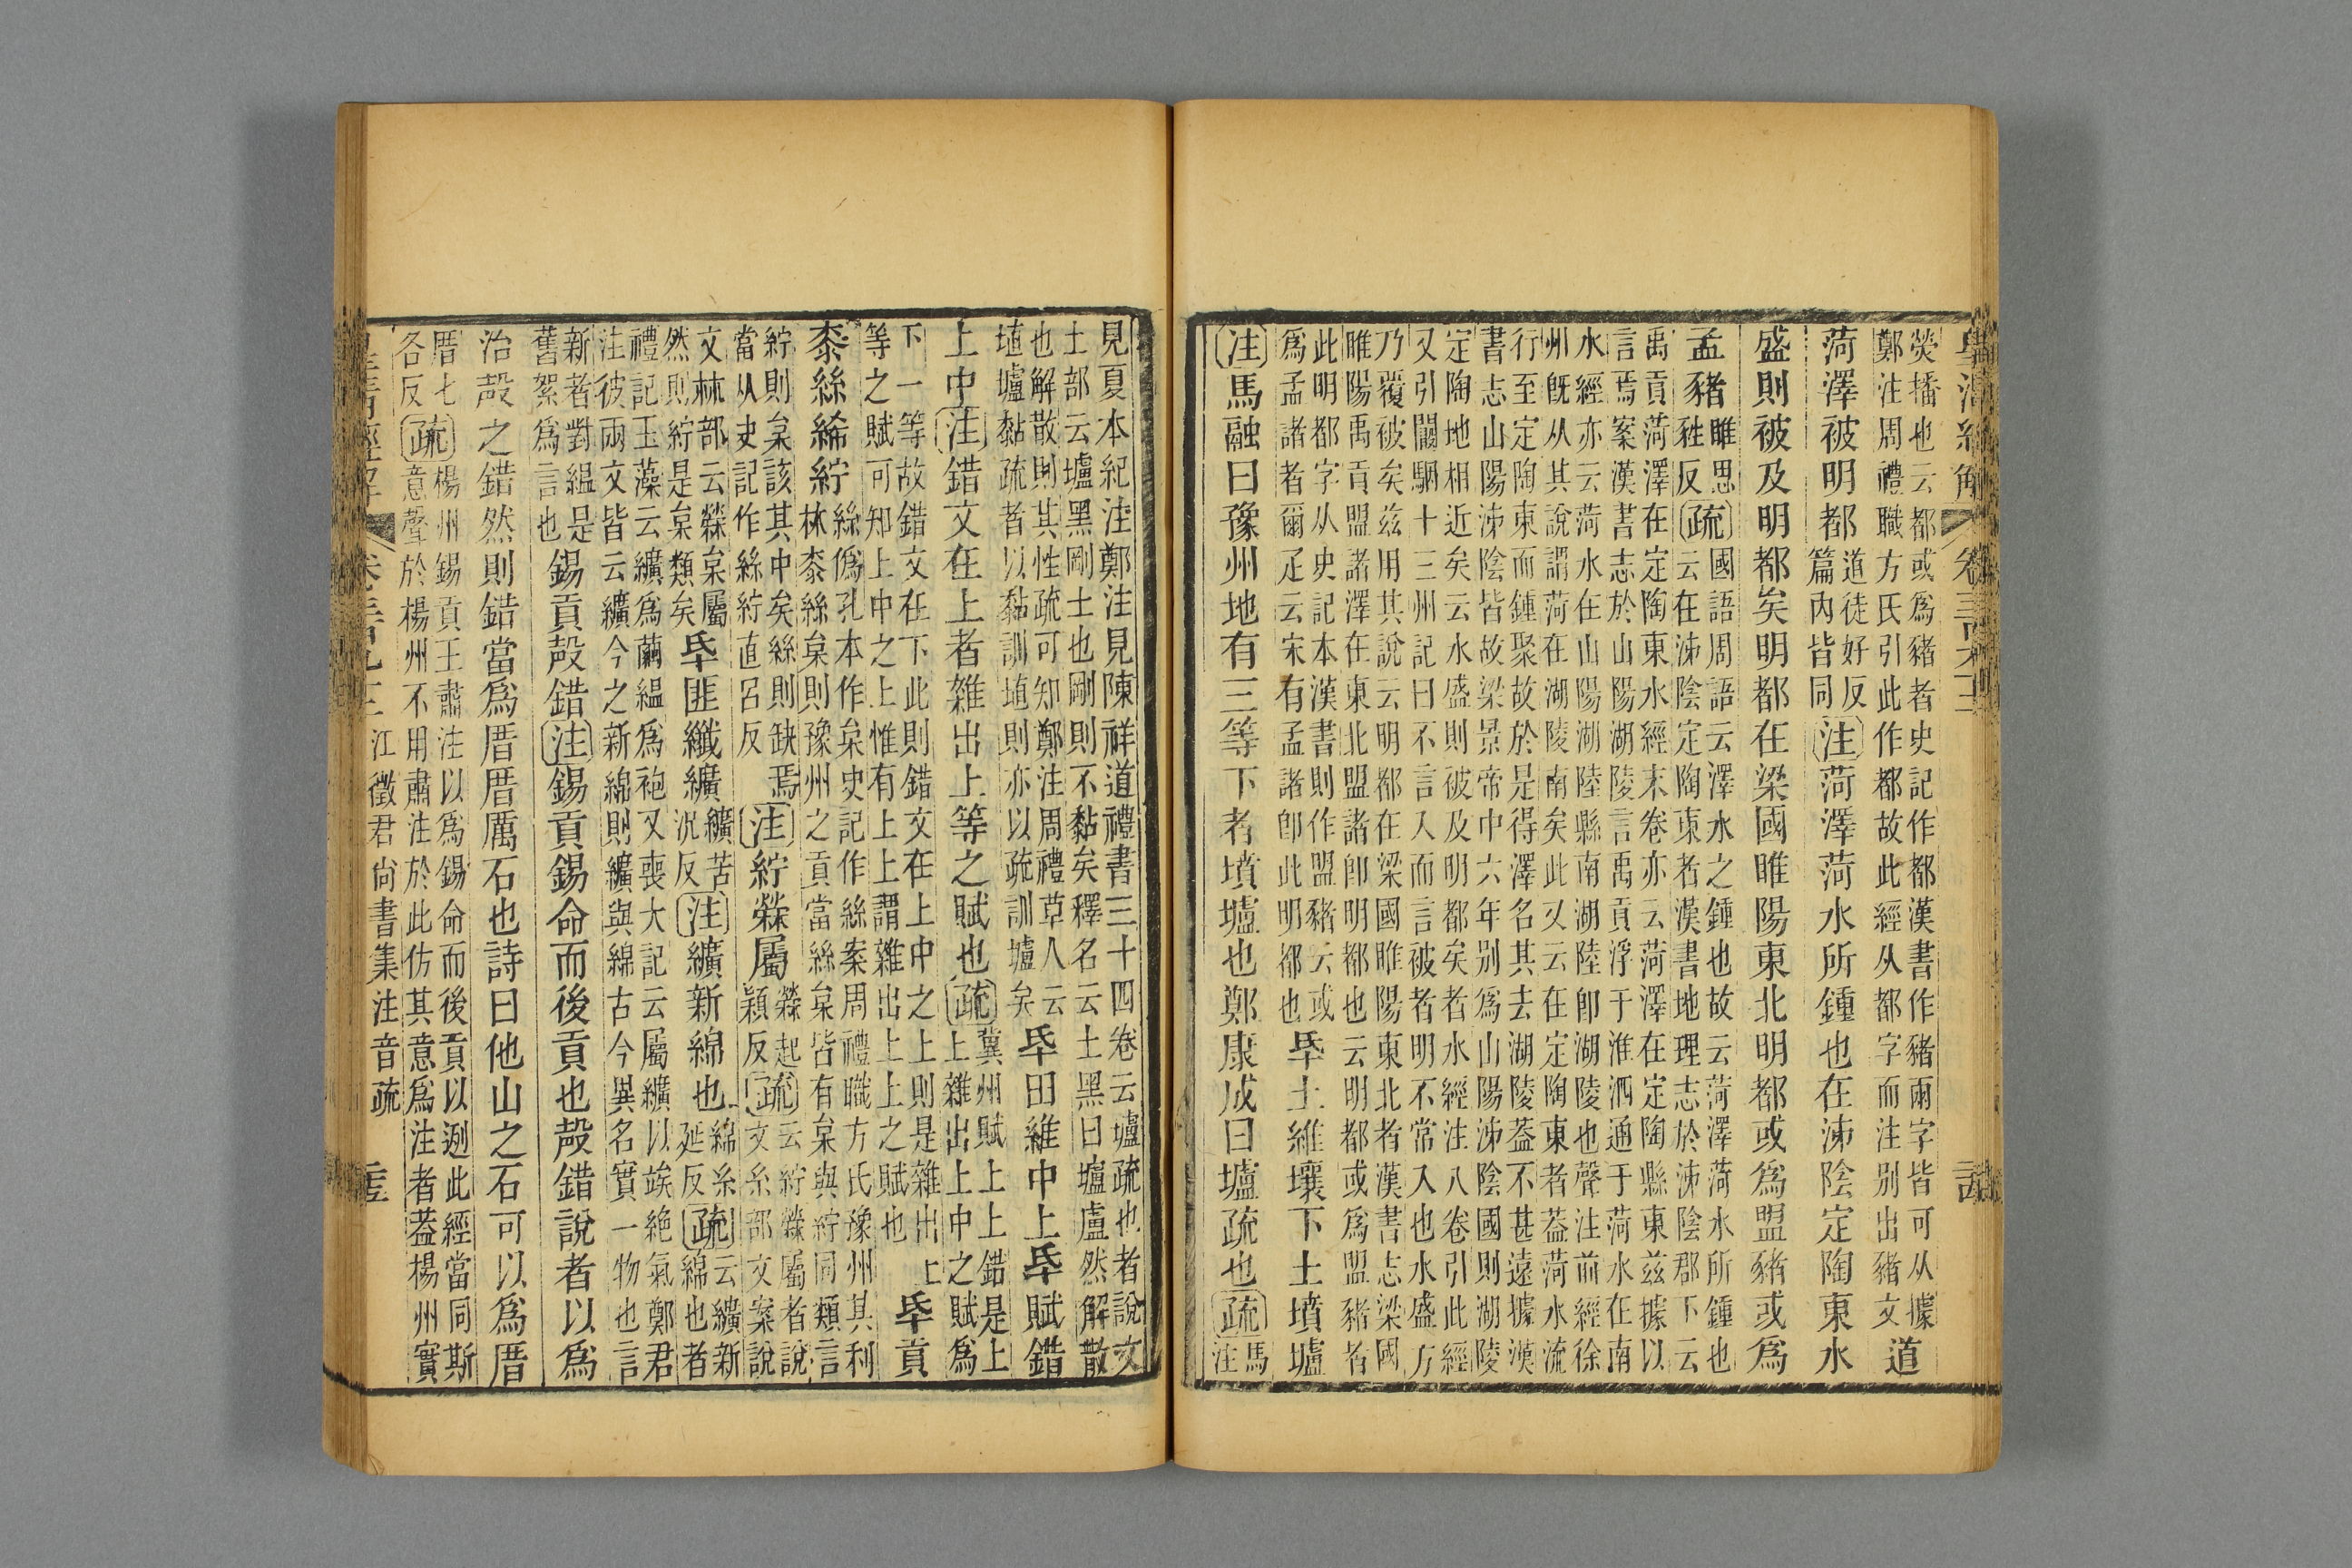 熒播也云都或爲豬者史記作都漢書作豬兩字皆可从據
鄭注周禮職方氏引此作都故此經从都字而注別出豬文
道
菏澤被明都
道徒好反
篇內皆同
注菏澤菏水所鍾也在泲陰定陶東水
盛則被及明都矣明都在梁國睢陽東北明都或爲盟豬或爲
孟豬
睢思
反
疏
國語周語云澤水之鍾也故云菏澤菏水所鍾也
云在泲陰定陶東者漢書地理志於泲陰郡下云
禹貢菏澤在定陶東水經末卷亦云菏澤在定陶縣東茲據以
言焉案漢書志於山陽湖陵言禹貢浮于淮泗通于菏水在南
水經亦云菏水在山陽湖陸縣南湖陸卽湖陵也聲注前經徐
州旣从其說謂菏在湖陵南矣此又云在定陶東者葢菏水流
行至定陶東而鍾聚故於是得澤名其去湖陵葢不甚遠據漢
書志山陽泲陰皆故梁景帝中六年別爲山陽泲陰國則湖陵
定陶地相近矣云水盛則被及明都矣者水經注八卷引此經
又引闞駰十三州記曰不言入而言被者明不常入也水盛方
乃覆被矣茲用其說云明都在梁國睢陽東北者漢書志梁國
睢陽禹貢盟諸澤在東北盟諸卽明都也云明都或爲盟豬者
此明都字从史記本漢書則作盟豬云或
爲孟諸者爾疋云宋有孟諸卽此明都也
氒土維壤下土墳壚
注馬融曰豫州地有三等下者墳壚也鄭康成曰壚疏也疏
馬
注
見夏本紀注鄭注見陳祥道禮書三十四卷云壚疏也者說文
土部云壚黑剛土也剛則不黏矣釋名云土黑曰壚盧然解散
也解散則其性疏可知鄭注周禮草人云
埴壚黏疏者以黏訓埴則亦以疏訓壚矣
氒田維中上氒賦錯
上中注錯文在上者雜出上等之賦也疏
冀州賦上上錯是上
上雜出上中之賦爲
下一等故錯文在下此則錯文在上中之上則是雜出上
等之賦可知上中之上惟有上上謂雜出上上之賦也
氒貢
桼絲絺紵
絲僞孔本作枲史記作絲案周禮職方氏豫州其利
林桼絲枲則豫州之貢當絲枲皆有枲與紵同類言
紵則枲該其中矣絲則缺焉
當从史記作絲紵直呂反
注紵檾屬
檾起
潁反
疏
云紵檾屬者說
文糸部文案說
文𣏟部云檾枲屬
然則紵是枲類矣
氒匪纖纊
纊苦
況反
注纊新綿也
綿糸
延反
疏
云纊新
綿也者
禮記玉藻云纊爲繭縕爲袍又喪大記云屬纊以竢絶氣鄭君
注彼兩文皆云纊今之新綿則纊與綿古今異名實一物也言
新者對縕是
舊絮爲言也
錫貢㱿錯注錫貢錫命而後貢也㱿錯說者以爲
治㱿之錯然則錯當爲厝厝厲石也詩曰他山之石可以爲厝
厝七
各反
疏
楊州錫貢王肅注以爲錫命而後貢以迾此經當同斯
意聲於楊州不用肅注於此仿其意爲注者葢楊州實
江徵君尚書集注音疏